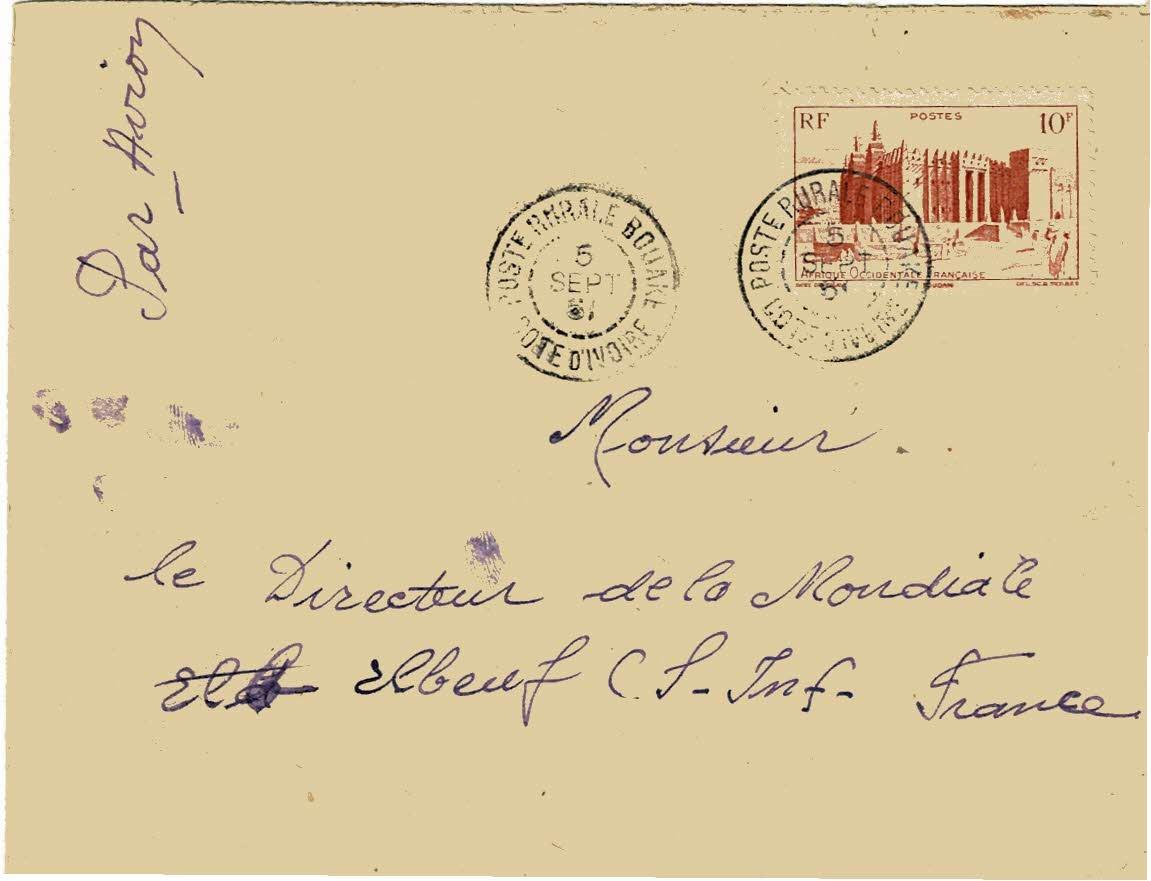 Par Avion
RF POSTES 10F
AFRIQUE OCCIDENTALE FRANÇAISE
POSTE RURALE BOUAKE
5
SEPT
51
COTE D'IVOIRE
POSTE RURALE BOUAKE
5
SEPT
51
COTE D'IVOIRE
Monsieur
le Directeur de la Mondiale
Elbeuf (S-Inf- France